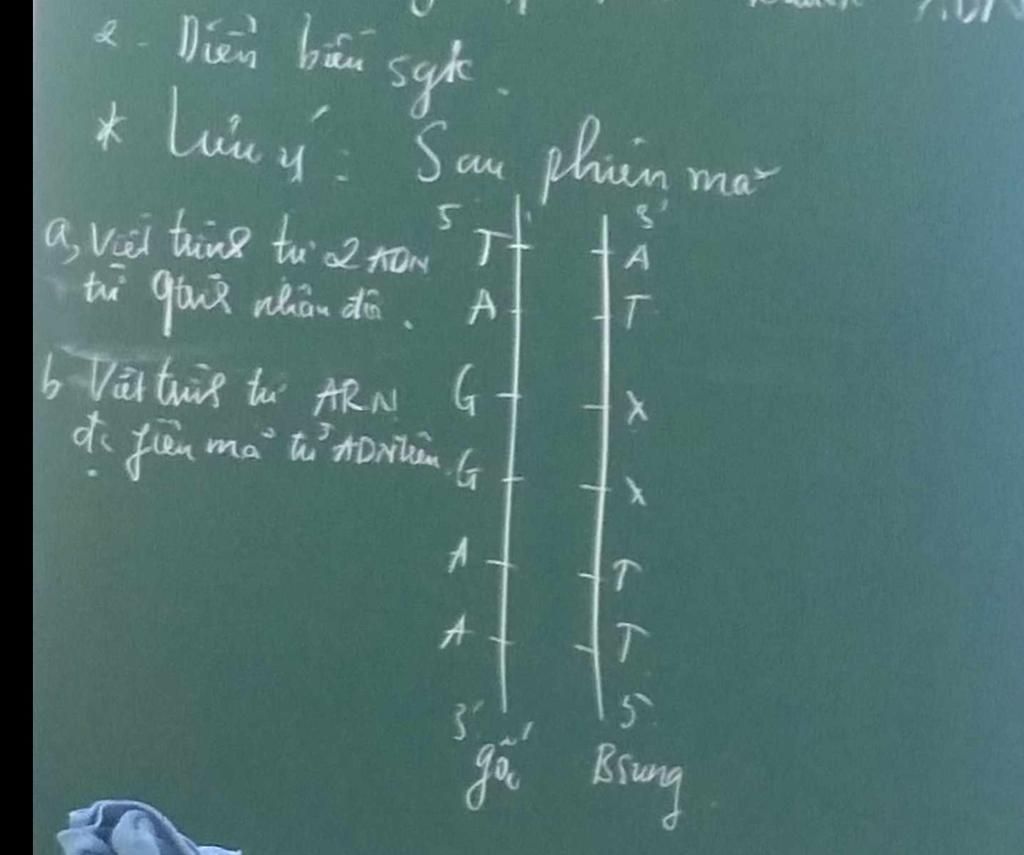 ADN
2. Diễn biến sgk.
* Lưu ý: Sau phiên mã
a, Viết trình tự 2 ADN
từ qtrình nhân đôi.
b Viết trình tự ARN
đc fiên mã từ ADN trên.
5' 3'
T A
A T
G X
G X
A T
A T
3' 5'
gốc Bsung